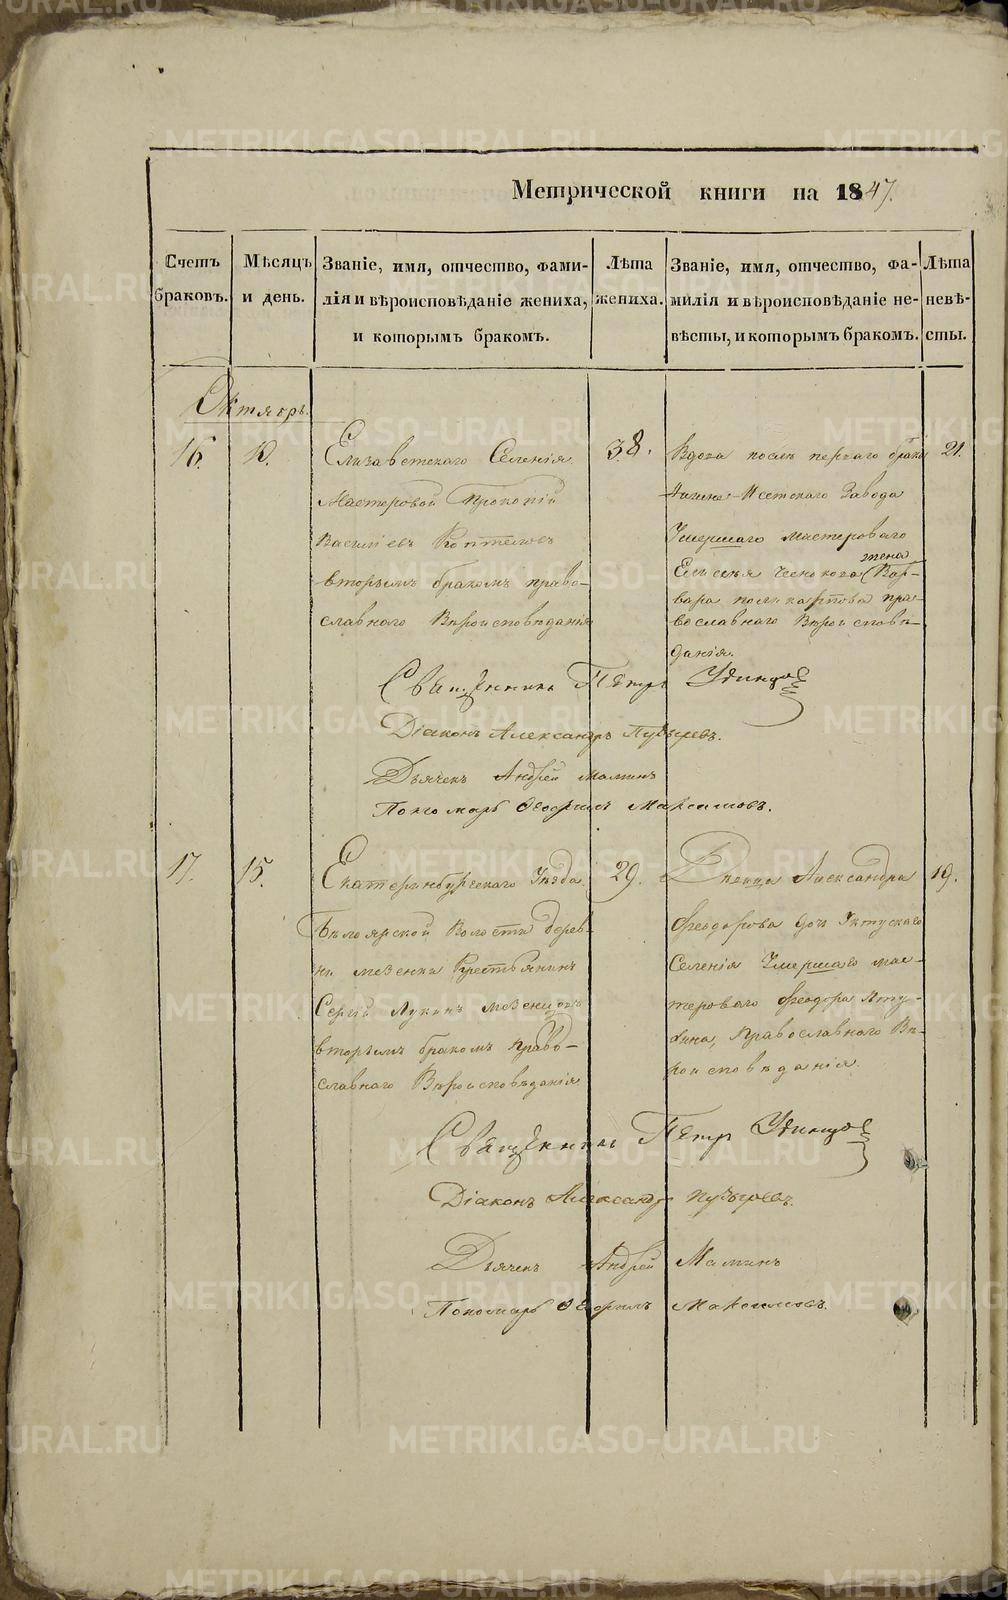 Метрической книги на 1847.
Счетъ браковъ.
Мѣсяцъ и день.
Званіе, имя, отчество, фами-
лія и вѣроисповѣданіе жениха,
и которымъ бракомъ.
Лѣта жениха.
Званіе, имя, отчество, фа-
милія и вѣроисповѣданіе не-
вѣсты, и которымъ бракомъ.
Лѣта невѣ-
сты.
Октябрь.
16.
10.
Елизаветскаго Селенія
Мастеровой Прокопій
Василіевъ Коптеловъ
вторымъ бракомъ право-
славнаго Вѣроисповѣданія
38.
Вдова послѣ перваго брака
Нижне-Исетскаго Завода
Умершаго мастероваго
жена
Елисея Чеснокова Вар-
вара право-
славнаго Вѣроисповѣ-
данія.
21.
Священникъ Петръ Удинцов
Діаконъ Александръ Пузыревъ.
Дьячекъ Андрей Маминъ
Пономарь Ѳеофилъ Максимовъ.
17.
15.
Екатеринбургскаго Уѣзда
Бѣлоярской Волости дерев-
ни мезенки Крестьянинъ
Сергій Лукинъ мезенцовъ
вторымъ бракомъ Право-
славнаго Вѣроисповѣданія
29.
Дѣвица Александра
Феодорова дочь Уктускаго
Селенія Умершаго мас-
тероваго Феодора
Православнаго Вѣ-
роисповѣданія.
19.
Священникъ Петр Удинцов
Діаконъ Александр Пузыревъ.
Дьячекъ Андрей Маминъ
Пономарь Ѳеофилъ Максимовъ.
METRIKI.GASO-URAL.RU